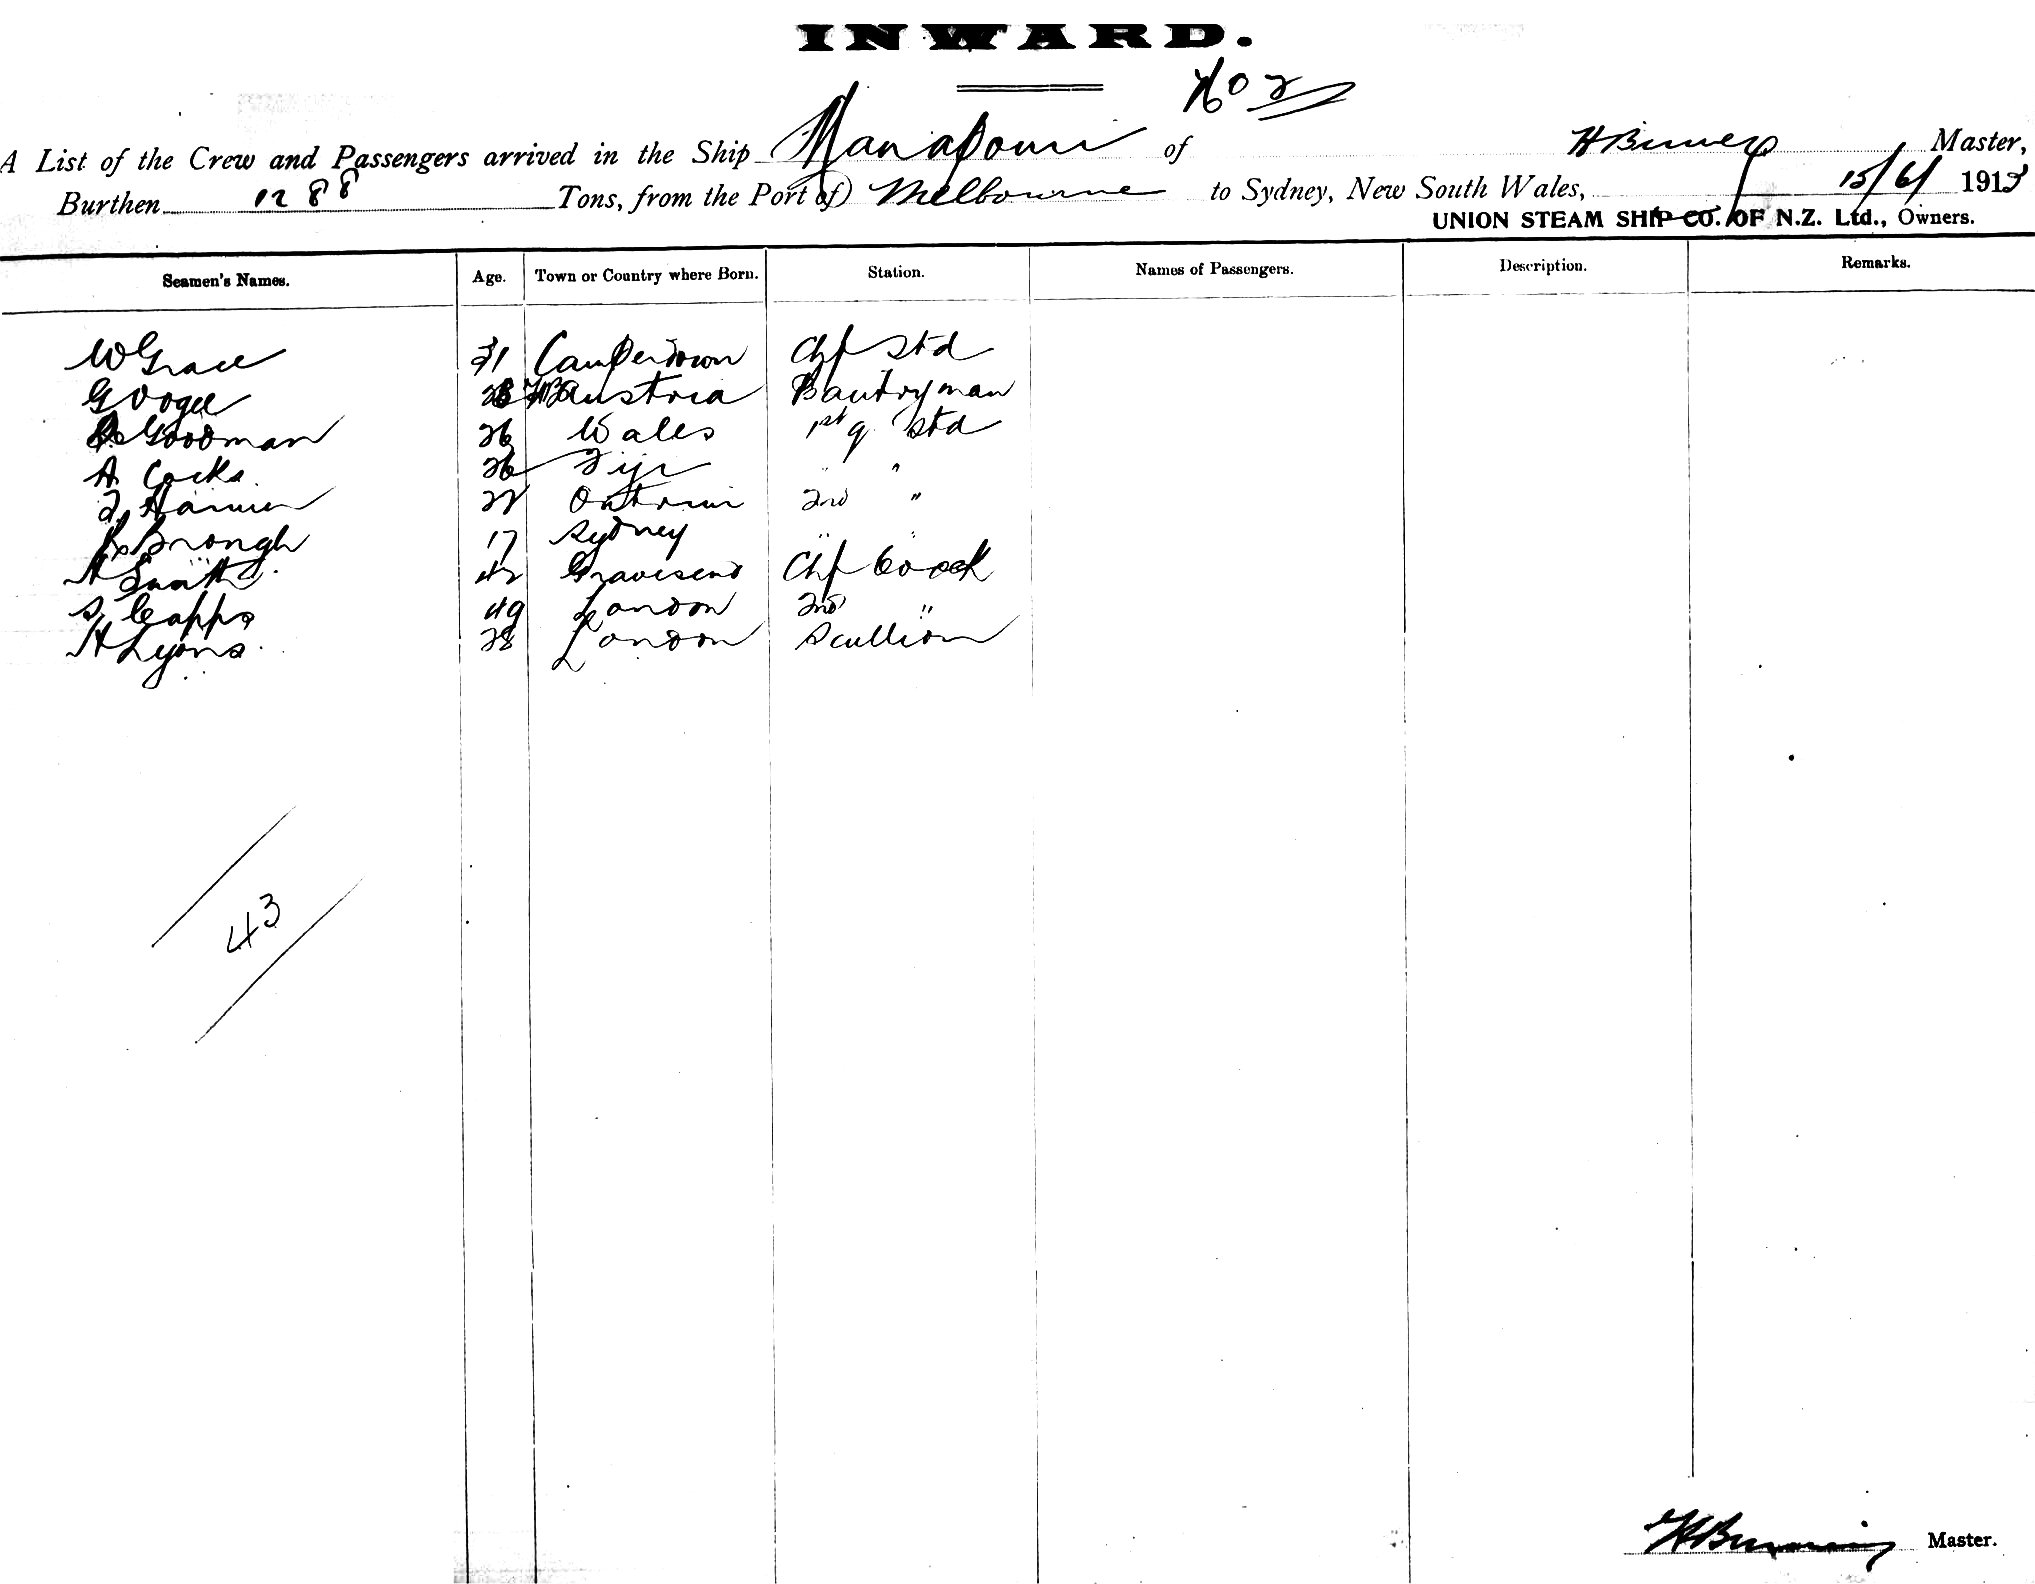 INWARD.
No 2
A List of the Crew and Passengers arrived in the Ship Manapouri of Master,
Burthen 1288 Tons, from the Port of Melbourne to Sydney, New South Wales, 15/6/ 1913
UNION STEAM SHIP CO. OF N.Z. Ltd., Owners.
Seamen's Names. Age. Town or Country where Born. Station. Names of Passengers. Description. Remarks.
W Grace 31 Camperdown Chf Std
G Vogel Austria Pantryman
Goodman 26 Wales 1st g Std
A Cocks 26 Fiji " "
22 2nd "
Brough 17 Sydney " "
A Smith 42 Gravesend Chf Cook
S Capps 49 London 2nd "
H Lyons 28 London Scullion
43
Master.